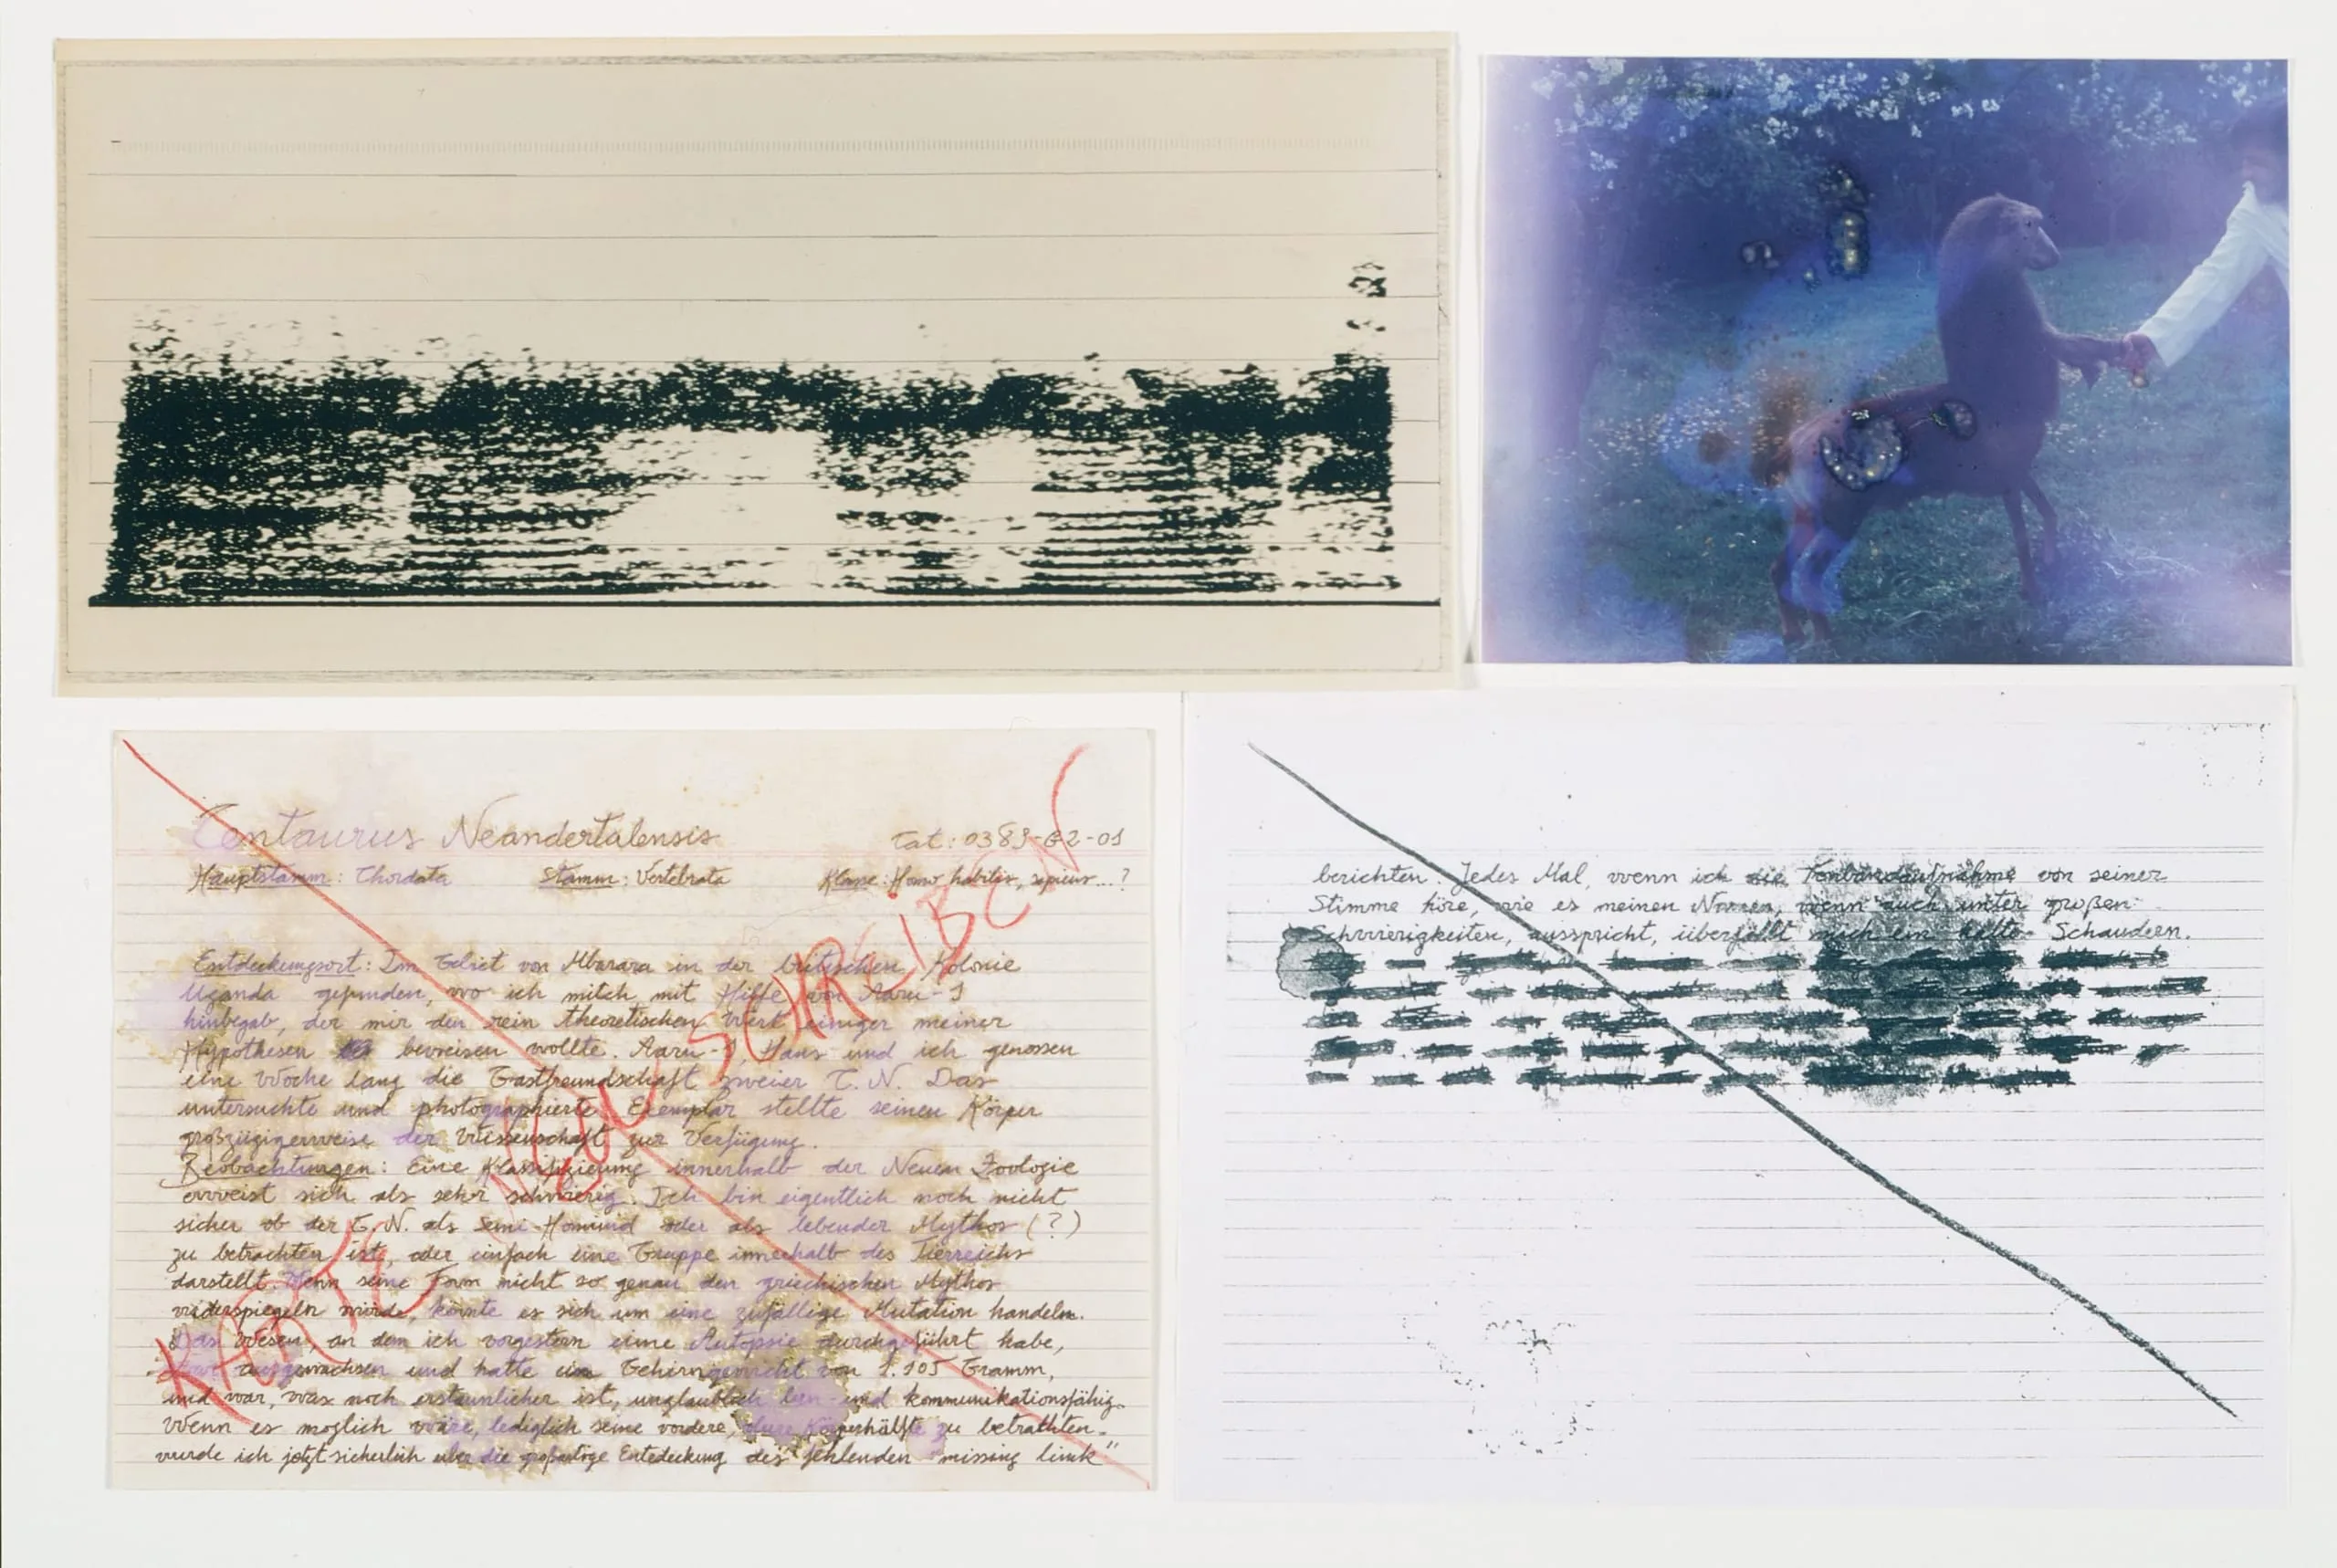 Centaurus Neandertalensis Cat: 0389-G2-01
Hauptstamm: Chordata Stamm: Vertebrata Klasse: Homo habilis, sapiens...?
Entdeckungsort: Im Gebiet von Mbarara in der britischen Kolonie
Uganda gefunden, wo ich mitch mit Hilfe von Aaru-1
hinbegab, der mir den rein theoretischen Wert einiger meiner
Hypothesen beweisen wollte. Aaru-1, Hans und ich genossen
eine Woche lang die Gastfreundschaft zweier C. N. Das
untersuchte und photographierte Exemplar stellte seinen Körper
großzügigerweise der Wissenschaft zur Verfügung.
Beobachtungen: Eine Klassifizierung innerhalb der Neuen Zoologie
erweist sich als sehr schwierig. Ich bin eigentlich noch nicht
sicher ob der C. N. als Semi-Hominid oder als lebender Mythos (?)
zu betrachten ist, oder einfach eine Gruppe innerhalb des Tierreichs
darstellt. Wenn seine Form nicht so genau den griechischen Mythos
widerspiegeln würde, könnte es sich um eine zufällige Mutation handeln.
Das Wesen, an dem ich vorgestern eine Autopsie durchgeführt habe,
war ausgewachsen und hatte ein Gehirngewicht von 1.105 Gramm,
und war, was noch erstaunlicher ist, unglaublich lern- und kommunikationsfähig.
Wenn es möglich wäre, lediglich seine vordere, obere Körperhälfte zu betrachten,
wurde ich jetzt sicherlich über die großartige Entdeckung des fehlenden "missing link"
KARTE NEU SCHREIBEN
berichten. Jedes Mal, wenn ich die Tonbandaufnahme von seiner
Stimme höre, wie es meinen Namen, wenn auch unter großen
Schwierigkeiten, ausspricht, überfällt mich ein kalter Schaudern.